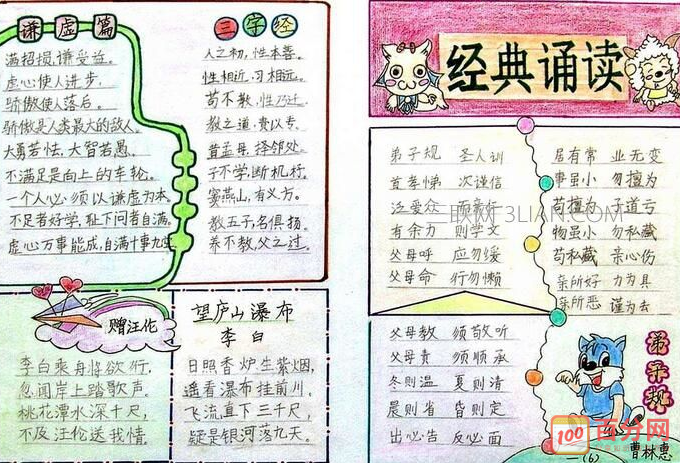 谦虚篇
满招损,谦受益。
虚心使人进步,
骄傲使人落后。
骄傲是人类最大的敌人。
大勇若怯,大智若愚。
不满足是向上的车轮。
一个人必须以谦虚为本。
不足者好学,耻下问者自满。
虚心万事能成,自满十事九空
三字经
人之初,性本善。
性相近,习相远。
苟不教,性乃迁。
教之道,贵以专。
昔孟母,择邻处。
子不学,断机杼。
窦燕山,有义方。
教五子,名俱扬。
养不教,父之过。
赠汪伦
李白乘舟将欲行,
忽闻岸上踏歌声。
桃花潭水深十尺,
不及汪伦送我情。
望庐山瀑布
李白
日照香炉生紫烟,
遥看瀑布挂前川。
飞流直下三千尺,
疑是银河落九天。
经典诵读
弟子规 圣人训
首孝悌 次谨信
泛爱众 而亲仁
有余力 则学文
父母呼 应勿缓
父母命 行勿懒
居有常 业无变
事虽小 勿擅为
苟擅为 子道亏
物虽小 勿私藏
苟私藏 亲心伤
亲所好 力为具
亲所恶 谨为去
父母教 须敬听
父母责 须顺承
冬则温 夏则清
晨则省 昏则定
出必告 反必面
弟子规
(6) 曹林惠
三联网 3LIAN.COM
100 百分网